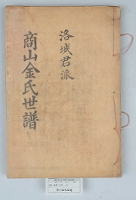 洛城君派
商山金氏世譜